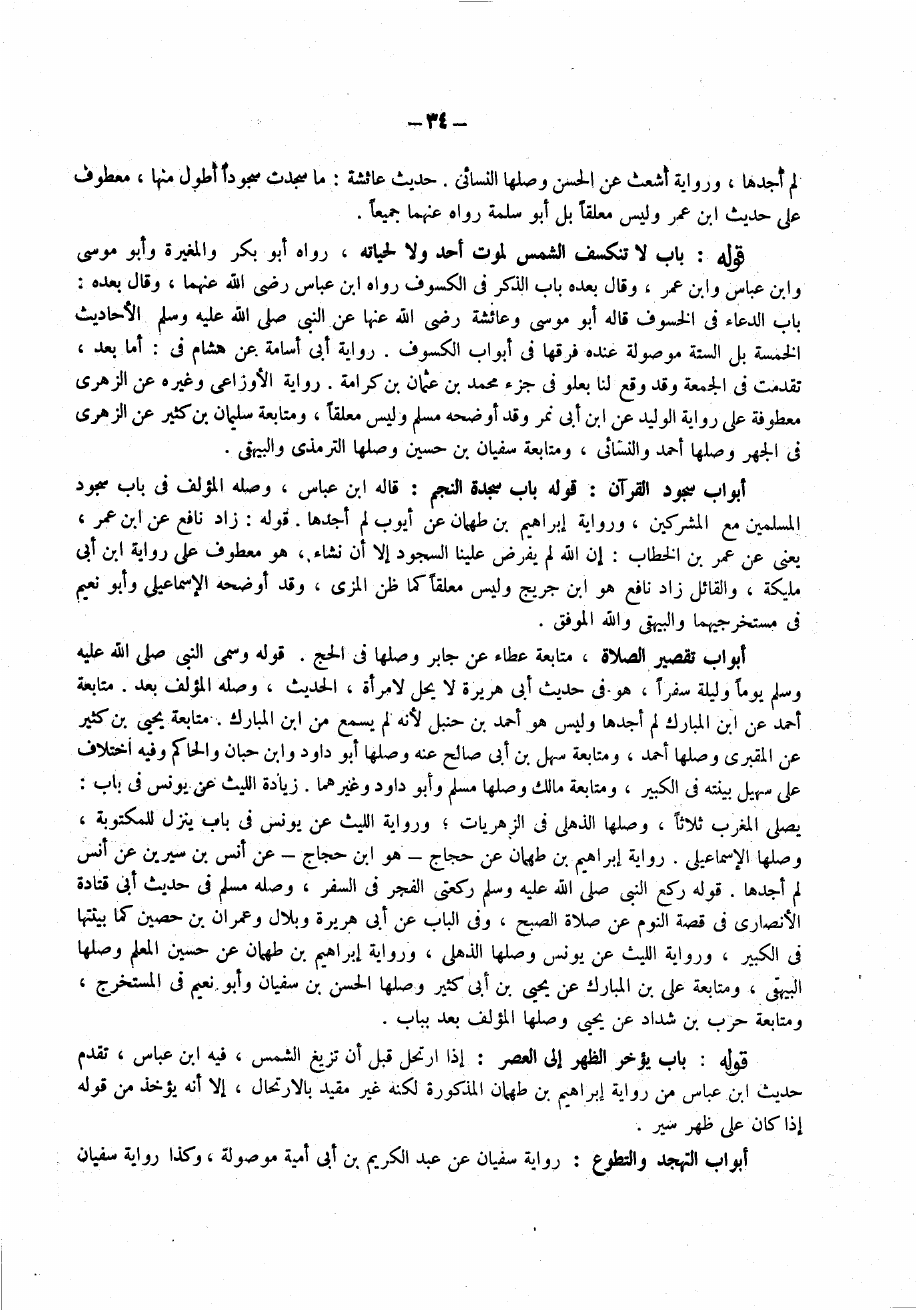 — ٣٤ —
لم أجدها ، ورواية أشعث عن الحسن وصلها النسائى . حديث عائشة : ما سجدت سجوداً أطول منها ، معطوف
على حديث ابن عمر وليس معلقاً بل أبو سلمة رواه عنهما جميعاً .
قوله : باب لا تنكسف الشمس لموت أحد ولا لحياته ، رواه أبو بكر والمغيرة وأبو موسى
وابن عباس وابن عمر ، وقال بعده باب الذكر فى الكسوف رواه ابن عباس رضى الله عنهما ، وقال بعده :
باب الدعاء فى الخسوف قاله أبو موسى وعائشة رضى الله عنها عن النبى صلى الله عليه وسلم الأحاديث
الخمسة بل الستة موصولة عنده فرقها فى أبواب الكسوف . رواية أبى أسامة عن هشام فى : أما بعد ،
تقدمت فى الجمعة وقد وقع لنا بعلو فى جزء محمد بن عثمان بن كرامة . رواية الأوزاعى وغيره عن الزهرى
معطوفة على رواية الوليد عن ابن أبى نمر وقد أوضحه مسلم وليس معلقاً ، ومتابعة سليمان بن كثير عن الزهرى
فى الجهر وصلها أحمد والنسائى ، ومتابعة سفيان بن حسين وصلها الترمذى والبيهقى .
أبواب سجود القرآن : قوله باب سجدة النجم : قاله ابن عباس ، وصله المؤلف فى باب سجود
المسلمين مع المشركين ، ورواية إبراهيم بن طهمان عن أيوب لم أجدها . قوله : زاد نافع عن ابن عمر ،
يعنى عن عمر بن الخطاب : إن الله لم يفرض علينا السجود إلا أن نشاء ، هو معطوف على رواية ابن أبى
مليكة ، والقائل زاد نافع هو ابن جريج وليس معلقاً كما ظن المزى ، وقد أوضحه الإسماعيلى وأبو نعيم
فى مستخرجيهما والبيهقى والله الموفق .
أبواب تقصير الصلاة ، متابعة عطاء عن جابر وصلها فى الحج . قوله وسمى النبى صلى الله عليه
وسلم يوماً وليلة سفراً ، هو فى حديث أبى هريرة لا يحل لامرأة ، الحديث ، وصله المؤلف بعد . متابعة
أحمد عن ابن المبارك لم أجدها وليس هو أحمد بن حنبل لأنه لم يسمع من ابن المبارك . متابعة يحيى بن كثير
عن المقبرى وصلها أحمد ، ومتابعة سهل بن أبى صالح عنه وصلها أبو داود وابن حبان والحاكم وفيه اختلاف
على سهيل بينته فى الكبير ، ومتابعة مالك وصلها مسلم وأبو داود وغيرهما . زيادة الليث عن يونس فى باب :
يصلى المغرب ثلاثاً ، وصلها الذهلى فى الزهريات ؛ ورواية الليث عن يونس فى باب ينزل للمكتوبة ،
وصلها الإسماعيلى . رواية إبراهيم بن طهمان عن حجاج — هو ابن حجاج — عن أنس بن سيرين عن أنس
لم أجدها . قوله ركع النبى صلى الله عليه وسلم ركعتى الفجر فى السفر ، وصله مسلم فى حديث أبى قتادة
الأنصارى فى قصة النوم عن صلاة الصبح ، وفى الباب عن أبى هريرة وبلال وعمران بن حصين كما بينتها
فى الكبير ، ورواية الليث عن يونس وصلها الذهلى ، ورواية إبراهيم بن طهمان عن حسين المعلم وصلها
البيهقى ، ومتابعة على بن المبارك عن يحيى بن أبى كثير وصلها الحسن بن سفيان وأبو نعيم فى المستخرج ،
ومتابعة حرب بن شداد عن يحيى وصلها المؤلف بعد بباب .
قوله : باب يؤخر الظهر إلى العصر : إذا ارتحل قبل أن تزيغ الشمس ، فيه ابن عباس ، تقدم
حديث ابن عباس من رواية إبراهيم بن طهمان المذكورة لكنه غير مقيد بالارتحال ، إلا أنه يؤخذ من قوله
إذا كان على ظهر سير .
أبواب التهجد والتطوع : رواية سفيان عن عبد الكريم بن أبى أمية موصولة ، وكذا رواية سفيان